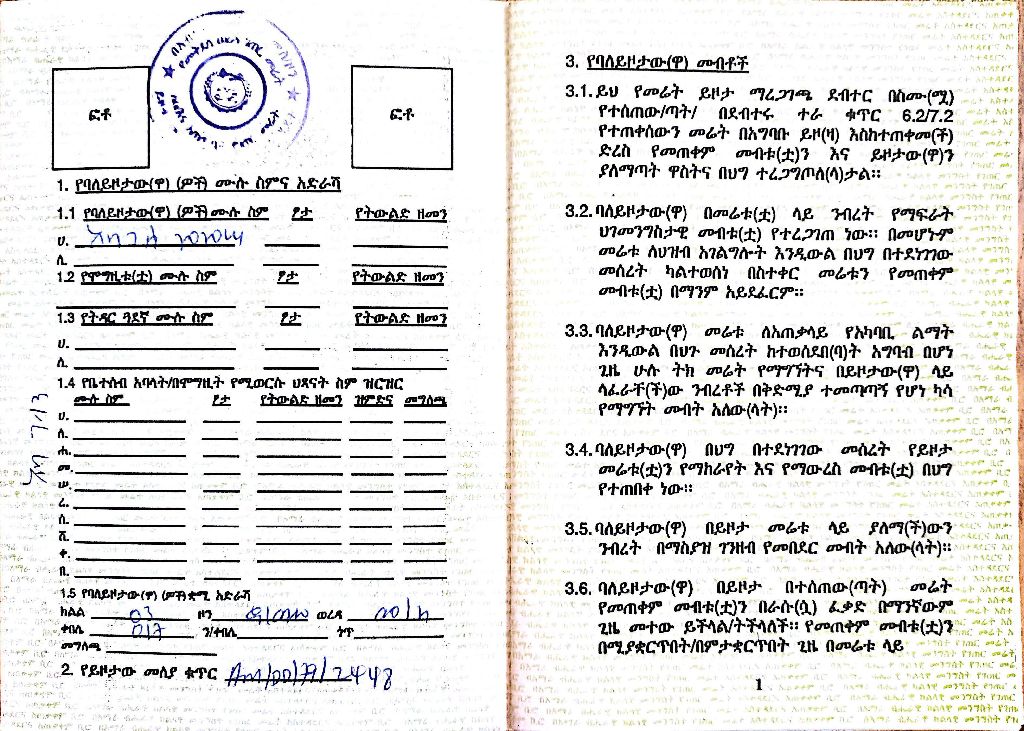 ፎቶ
ፎቶ
1. የባለይዞታው(ዋ) (ዎች) ሙሉ ስምና አድራሻ
1.1 የባለይዞታው(ዋ) (ዎች) ሙሉ ስም ፆታ የትውልድ ዘመን
ሀ.
ሲ.
1.2 የሞግዚቱ(ቷ) ሙሉ ስም ፆታ የትውልድ ዘመን
1.3 የትዳር ጓደኛ ሙሉ ስም ፆታ የትውልድ ዘመን
ሀ.
ሲ.
1.4 የቤተሰብ አባላት/በሞግዚት የሚወርሱ ህጻናት ስም ዝርዝር
ሙሉ ስም ፆታ የትውልድ ዘመን ዝምድና መግለጫ
ሀ.
ሰ.
ሐ.
መ.
ሠ.
ረ.
ሰ.
ሸ.
ቀ.
በ.
1.5 የባለይዞታው(ዋ) (ዎች) ቋሚ አድራሻ
ክልል 03 ዞን ወረዳ
ቀበሌ 017 ን/ቀበሌ ጎጥ
መግለጫ
2. የይዞታው መለያ ቁጥር Am/DD/77/2448
3. የባለይዞታው(ዋ) መብቶች
3.1. ይህ የመሬት ይዞታ ማረጋገጫ ደብተር በስሙ(ሟ)
የተሰጠው/ጣት/ በደብተሩ ተራ ቁጥር 6.2/7.2
የተጠቀሰውን መሬት በአግባቡ ይዞ(ዛ) እስከተጠቀመ(ች)
ድረስ የመጠቀም መብቱ(ቷ)ን እና ይዞታው(ዋ)ን
ያለማጣት ዋስትና በህግ ተረጋግጦለ(ላ)ታል።
3.2. ባለይዞታው(ዋ) በመሬቱ(ቷ) ላይ ንብረት የማፍራት
ህገመንግስታዊ መብቱ(ቷ) የተረጋገጠ ነው። በመሆኑም
መሬቱ ለህዝብ አገልግሎት እንዲውል በህግ በተደነገገው
መሰረት ካልተወሰነ በስተቀር መሬቱን የመጠቀም
መብቱ(ቷ) በማንም አይደፈርም።
3.3. ባለይዞታው(ዋ) መሬቱ ለአጠቃላይ የአካባቢ ልማት
እንዲውል በህጉ መሰረት ከተወሰደበ(ባ)ት አግባብ በሆነ
ጊዜ ሁሉ ትክ መሬት የማግኘትና በይዞታው(ዋ) ላይ
ላፈራቸ(ች)ው ንብረቶች በቅድሚያ ተመጣጣኝ የሆነ ካሳ
የማግኘት መብት አለው(ላት)።
3.4. ባለይዞታው(ዋ) በህግ በተደነገገው መሰረት የይዞታ
መሬቱ(ቷ)ን የማከራየት እና የማውረስ መብቱ(ቷ) በህግ
የተጠበቀ ነው።
3.5. ባለይዞታው(ዋ) በይዞታ መሬቱ ላይ ያለማ(ች)ውን
ንብረት በማስያዝ ገንዘብ የመበደር መብት አለው(ላት)።
3.6. ባለይዞታው(ዋ) በይዞታ በተሰጠው(ጣት) መሬት
የመጠቀም መብቱ(ቷ)ን በራሱ(ሷ) ፈቃድ በማንኛውም
ጊዜ መተው ይችላል/ትችላለች። የመጠቀም መብቱ(ቷ)ን
በሚያቋርጥበት/በምታቋርጥበት ጊዜ በመሬቱ ላይ
1